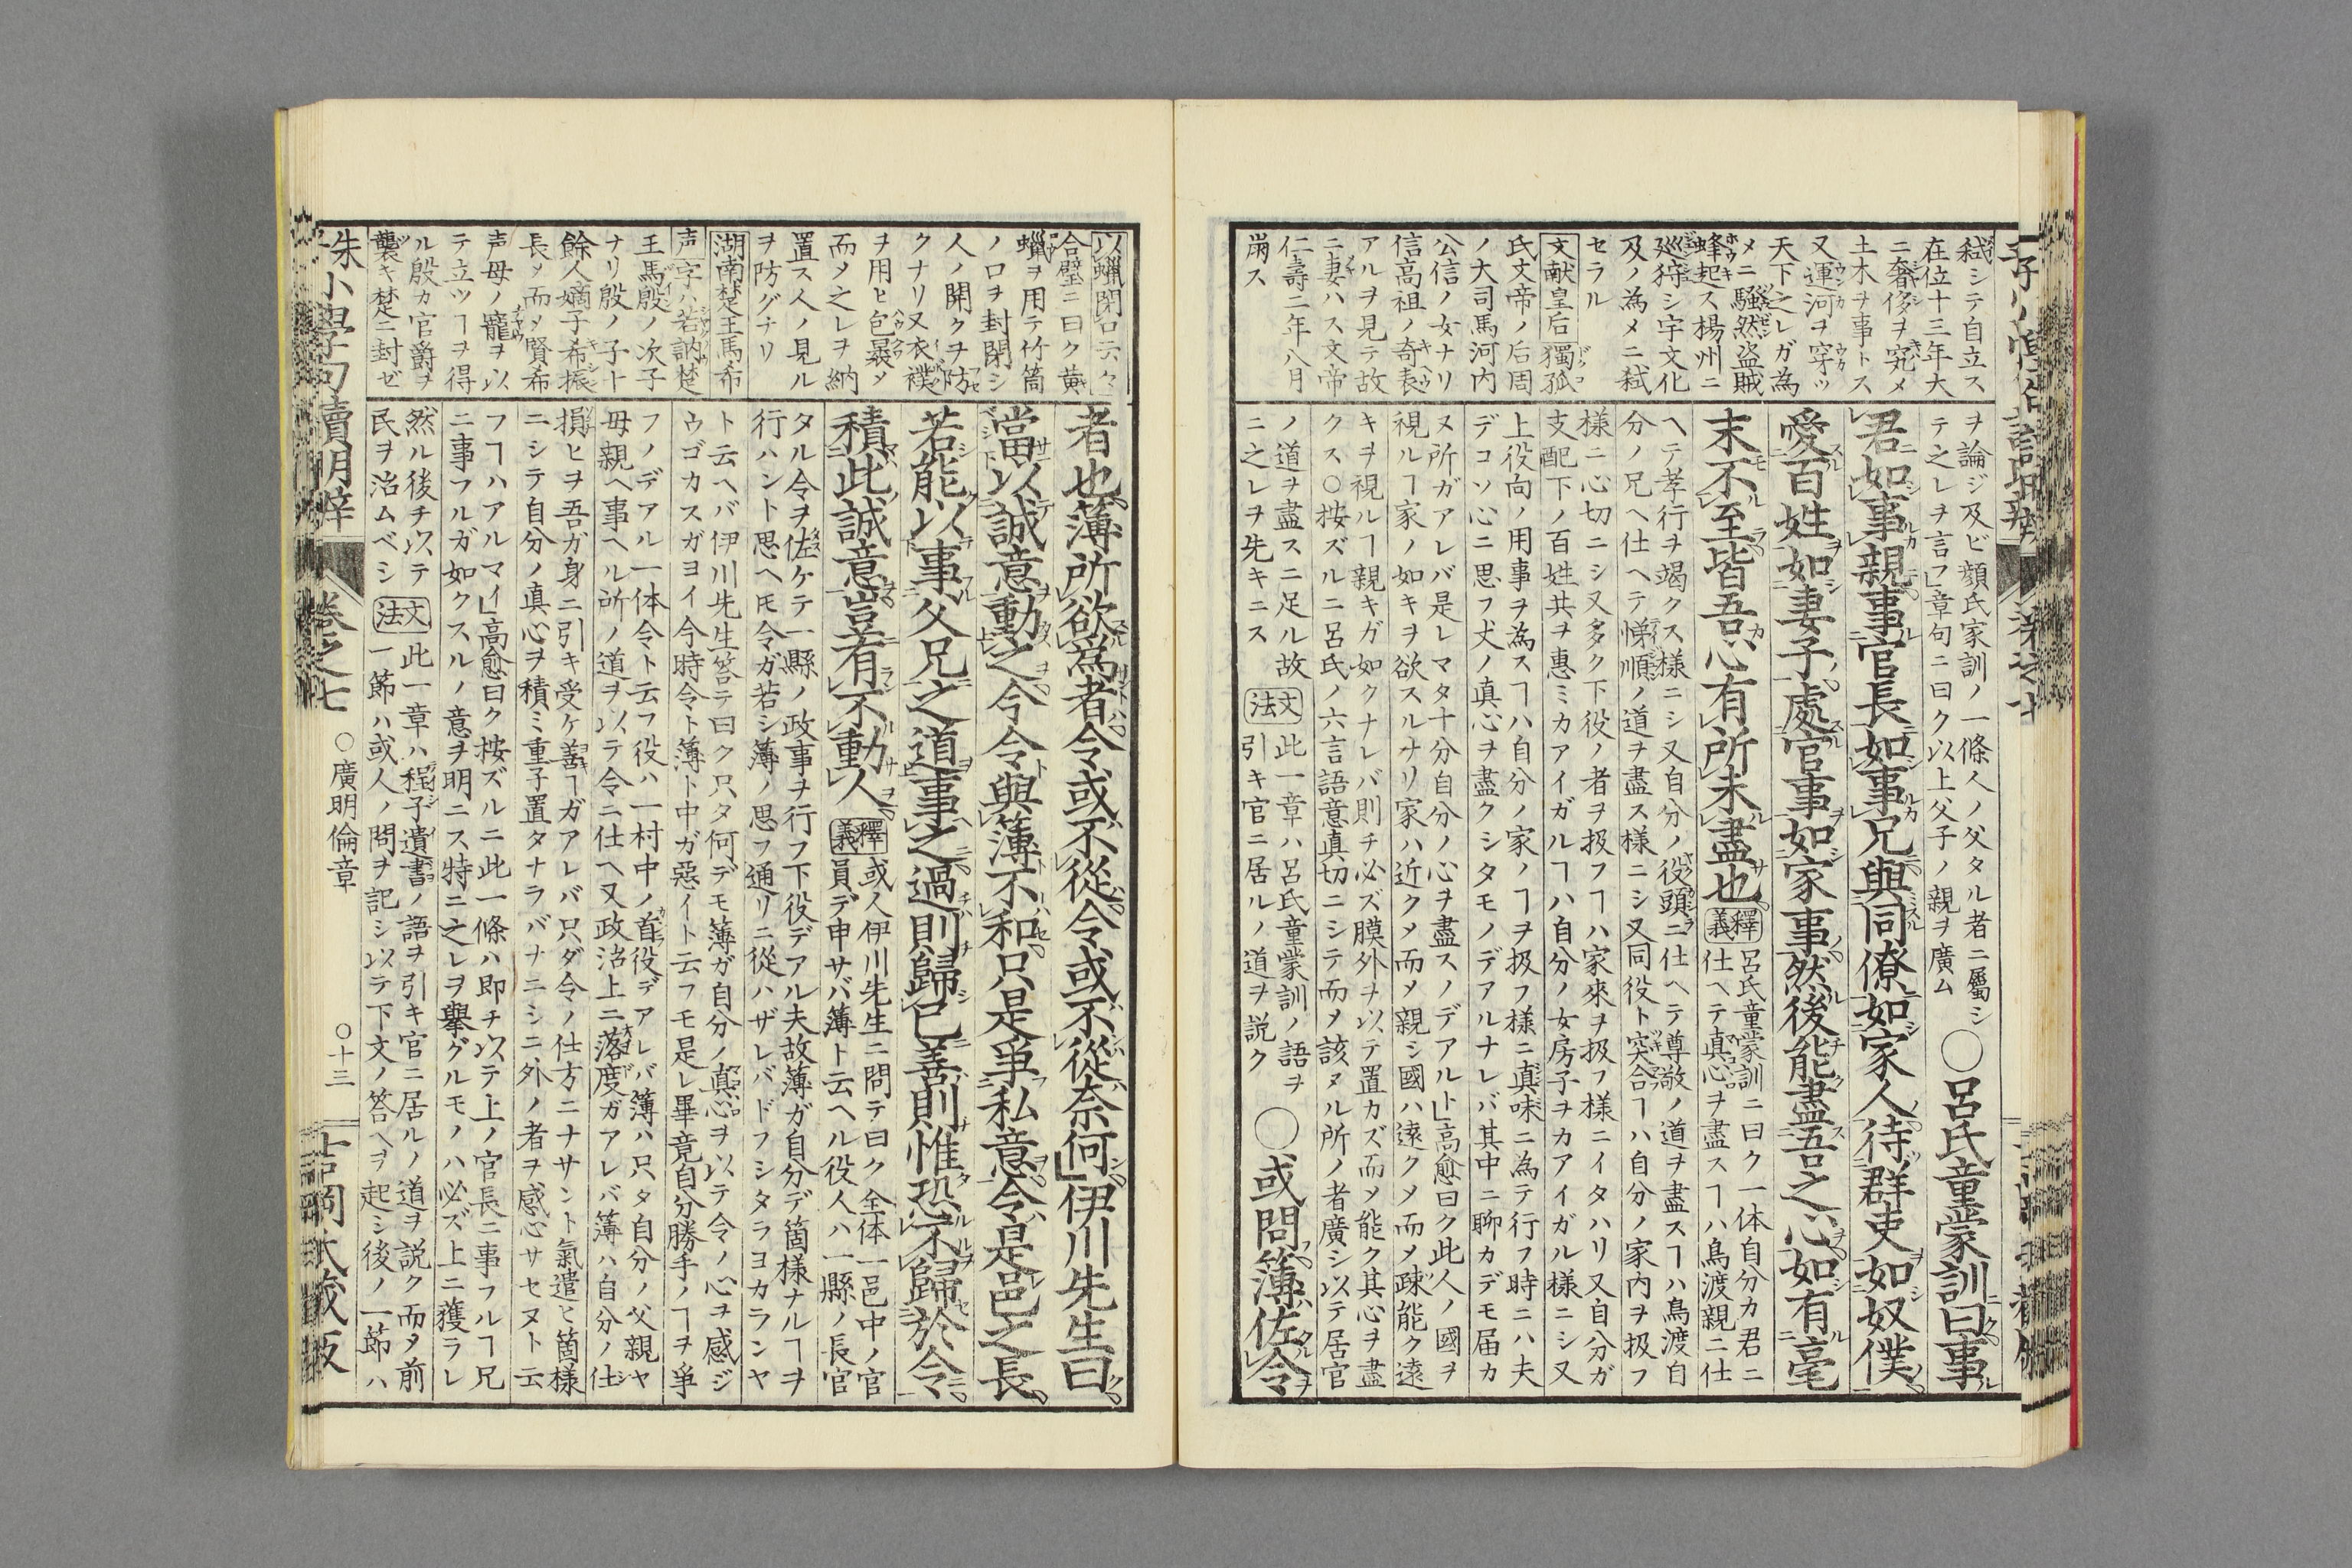 弑シテ自立ス
在位十三年大
ニ奢侈ヲ究メ
土木ヲ事トス
又運河ヲ穿ツ
天下之レガ為
メニ騒然盗賊
蜂起ス楊州ニ
巡狩シ宇文化
及ノ為メニ弑
セラル
文献皇后獨孤
氏文帝ノ后周
ノ大司馬河内
公信ノ女ナリ
信高祖ノ奇表
アルヲ見テ故
ニ妻ハス文帝
仁壽二年八月
崩ス
ヲ論ジ及ビ顔氏家訓ノ一條人ノ父タル者ニ屬シ
テ之レヲ言フ」章句ニ曰ク以上父子ノ親ヲ廣ム
○呂氏童蒙訓曰事
君如事親事官長如事兄與同僚如家人待群吏如奴僕
愛百姓如妻子處官事如家事然後能盡吾之心如有毫
末不至皆吾心有所未盡也
釋義
呂氏童蒙訓ニ曰ク一体自分カ君ニ
仕ヘテ真心ヲ盡スヿハ鳥渡親ニ仕
ヘテ孝行ヲ竭クス様ニシ又自分ノ役頭ニ仕ヘテ尊敬ノ道ヲ盡スヿハ鳥渡自
分ノ兄ヘ仕ヘテ悌順ノ道ヲ盡ス様ニシ又同役ト突合ヿハ自分ノ家内ヲ扱フ
様ニ心切ニシ又多ク下役ノ者ヲ扱フヿハ家來ヲ扱フ様ニイタハリ又自分ガ
支配下ノ百姓共ヲ惠ミカアイガルヿハ自分ノ女房子ヲカアイガル様ニシ又
上役向ノ用事ヲ為スヿハ自分ノ家ノヿヲ扱フ様ニ真味ニ為テ行フ時ニハ夫
デコソ心ニ思フ丈ノ真心ヲ盡クシタモノデアルナレバ其中ニ聊カデモ届カ
ヌ所ガアレバ是レマタ十分自分ノ心ヲ盡スノデアルト」高愈曰ク此人ノ國ヲ
視ルヿ家ノ如キヲ欲スルナリ家ハ近クメ而メ親シ國ハ遠クメ而メ疎能ク遠
キヲ視ルヿ親キガ如クナレバ則チ必ズ膜外ヲ以テ置カズ而メ能ク其心ヲ盡
クス○按ズルニ呂氏ノ六言語意真切ニシテ而メ該メル所ノ者廣シ以テ居官
ノ道ヲ盡スニ足ル故
ニ之レヲ先キニス
文法
此一章ハ呂氏童蒙訓ノ語ヲ
引キ官ニ居ルノ道ヲ説ク
○或問簿佐令
以蠟閉口云々
合璧ニ曰ク黄
蠟ヲ用テ竹筒
ノ口ヲ封閉シ
人ノ開クヲ防
クナリ又衣襆
ヲ用ヒ包裹メ
而メ之レヲ納
置ス人ノ見ル
ヲ防グナリ
湖南楚王馬希
声字ハ若訥楚
王馬殷ノ次子
ナリ殷ノ子十
餘人嫡子希振
長メ而メ賢希
声母ノ寵ヲ以
テ立ツヿヲ得
ル殷カ官爵ヲ
襲キ楚ニ封ゼ
者也簿所欲爲者令或不從令或不從奈何」伊川先生曰
當以誠意動之今令與簿不和只是爭私意令是邑之長
若能以事父兄之道事之過則歸已善則惟恐不歸於令
積此誠意豈有不動人
釋義
或人伊川先生ニ問テ曰ク全体一邑中ノ官
員デ申サバ簿ト云ヘル役人ハ一縣ノ長官
タル令ヲ佐ケテ一縣ノ政事ヲ行フ下役デアル夫故簿ガ自分デ箇様ナルヿヲ
行ハント思ヘ𪜈令ガ若シ簿ノ思フ通リニ從ハザレバドフシタラヨカランヤ
ト云ヘバ伊川先生答テ曰ク只タ何デモ簿ガ自分ノ真心ヲ以テ令ノ心ヲ感ジ
ウゴカスガヨイ今時令ト簿ト中ガ惡イト云フモ是レ畢竟自分勝手ノヿヲ爭
フノデアル一体令ト云フ役ハ一村中ノ首役デアレバ簿ハ只タ自分ノ父親ヤ
母親ヘ事ヘル所ノ道ヲ以テ令ニ仕ヘ又政治上ニ落度ガアレバ簿ハ自分ノ仕
損ヒヲ吾ガ身ニ引キ受ケ善ヿガアレバ只ダ令ノ仕方ニナサント氣遣ヒ箇様
ニシテ自分ノ真心ヲ積ミ重子置タナラバナニシニ外ノ者ヲ感心サセヌト云
フヿハアルマイ」高愈曰ク按ズルニ此一條ハ即チ以テ上ノ官長ニ事フルヿ兄
ニ事フルガ如クスルノ意ヲ明ニス特ニ之レヲ擧グルモノハ必ズ上ニ獲ラレ
然ル後チ以テ
民ヲ治ムベシ
文法
此一章ハ程子遺書ノ語ヲ引キ官ニ居ルノ道ヲ説ク而メ前
一節ハ或人ノ問ヲ記シ以テ下文ノ答ヘヲ起シ後ノ一節ハ
朱小學句讀明辨
卷之七
○廣明倫章
○十三